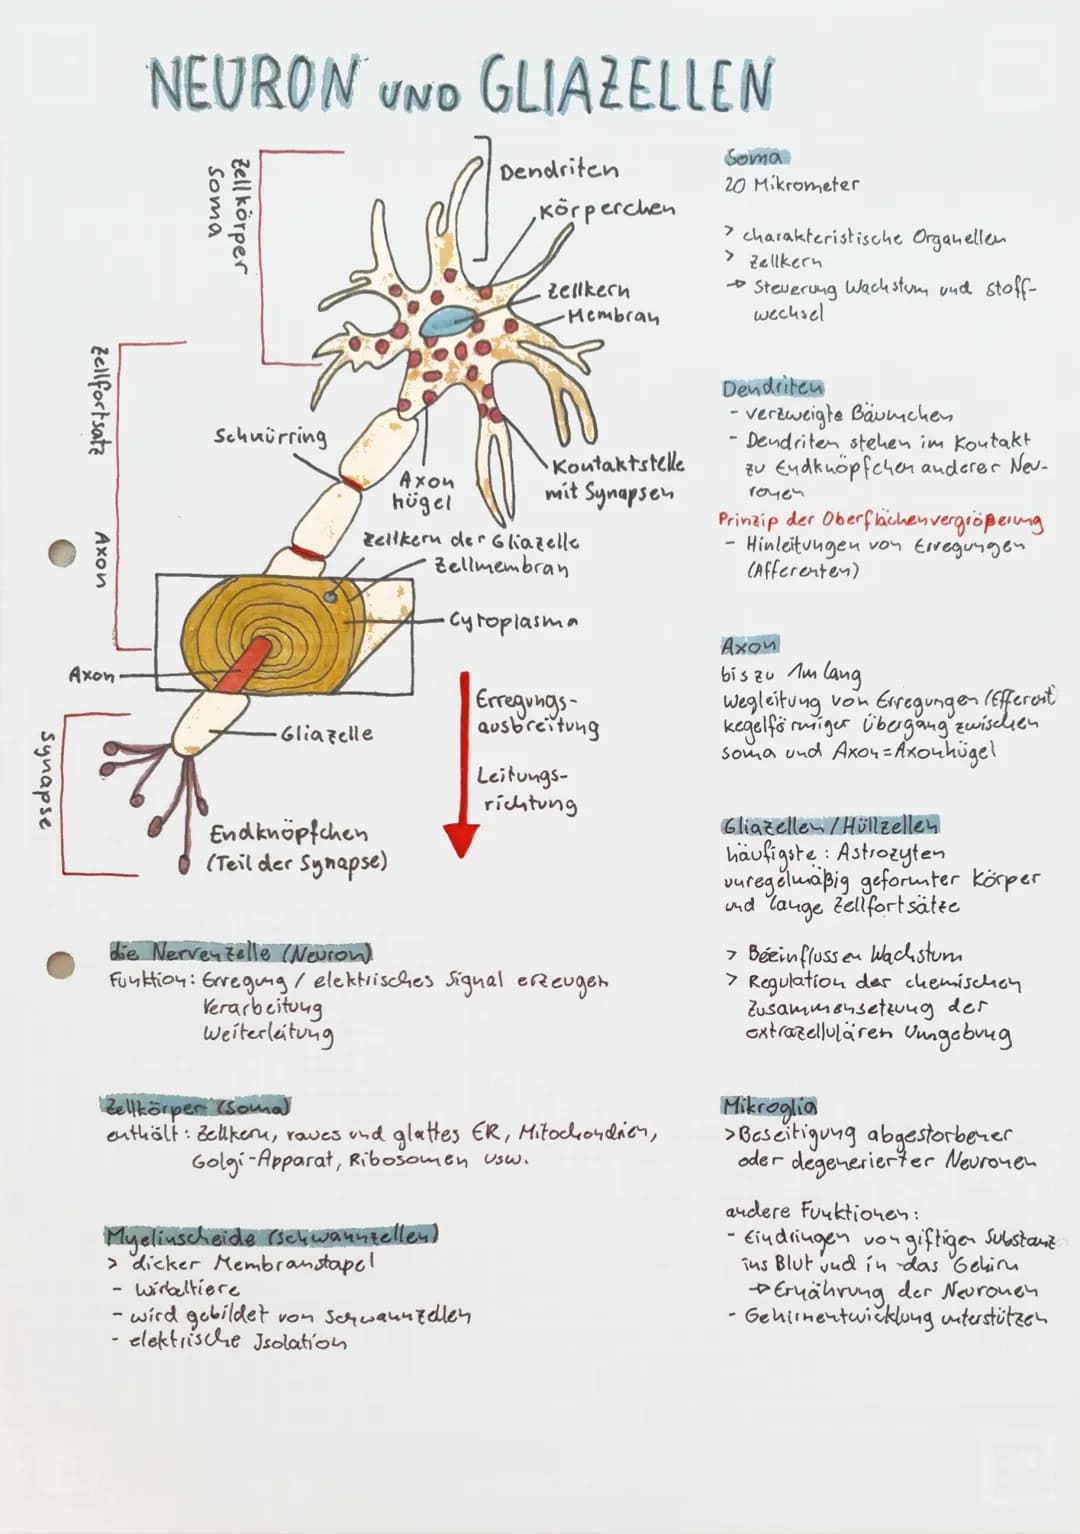 NEURON UND GLIAZELLEN
Zellkörper
Soma
Dendriten
Körperchen
Zellkern
Membran
Zellfortsatz
Axon
Schnürring
Axon
hügel
Kontaktstelle
mit Synapsen
Zellkern der Gliazelle
Zellmembran
Cytoplasma
Axon
Erregungs-
ausbreitung
Leitungs-
richtung
Gliazelle
Synapse
Endknöpfchen
(Teil der Synapse)
die Nervenzelle (Neuron)
Funktion: Erregung / elektrisches Signal erzeugen
Verarbeitung
Weiterleitung
Zellkörper (Soma)
enthält: Zellkern, raues und glattes ER, Mitochondrien,
Golgi-Apparat, Ribosomen usw.
Myelinscheide (Schwannzellen)
> dicker Membranstapel
- Wirbeltiere
- wird gebildet von Schwannzellen
- elektrische Isolation
Soma
20 Mikrometer
> charakteristische Organellen
> Zellkern
→ Steuerung Wachstum und Stoff-
wechsel
Dendriten
- verzweigte Bäumchen
- Dendriten stehen im Kontakt
zu Endknöpfchen anderer Neu-
ronen
Prinzip der Oberflächenvergrößerung
- Hinleitungen von Erregungen
(Afferenten)
Axon
bis zu 1m lang
Wegleitung von Erregungen (Efferent)
kegelförmiger Übergang zwischen
Soma und Axon = Axonhügel
Gliazellen / Hüllzellen
häufigste: Astrozyten
unregelmäßig geformter Körper
und lange Zellfortsätze
> Beeinflussen Wachstum
> Regulation der chemischen
Zusammensetzung der
extrazellulären Umgebung
Mikroglia
> Beseitigung abgestorbener
oder degenerierter Neuronen
andere Funktionen:
- Eindringen von giftigen Substanz
ins Blut und in das Gehirn
→ Ernährung der Neuronen
- Gehirnentwicklung unterstützen